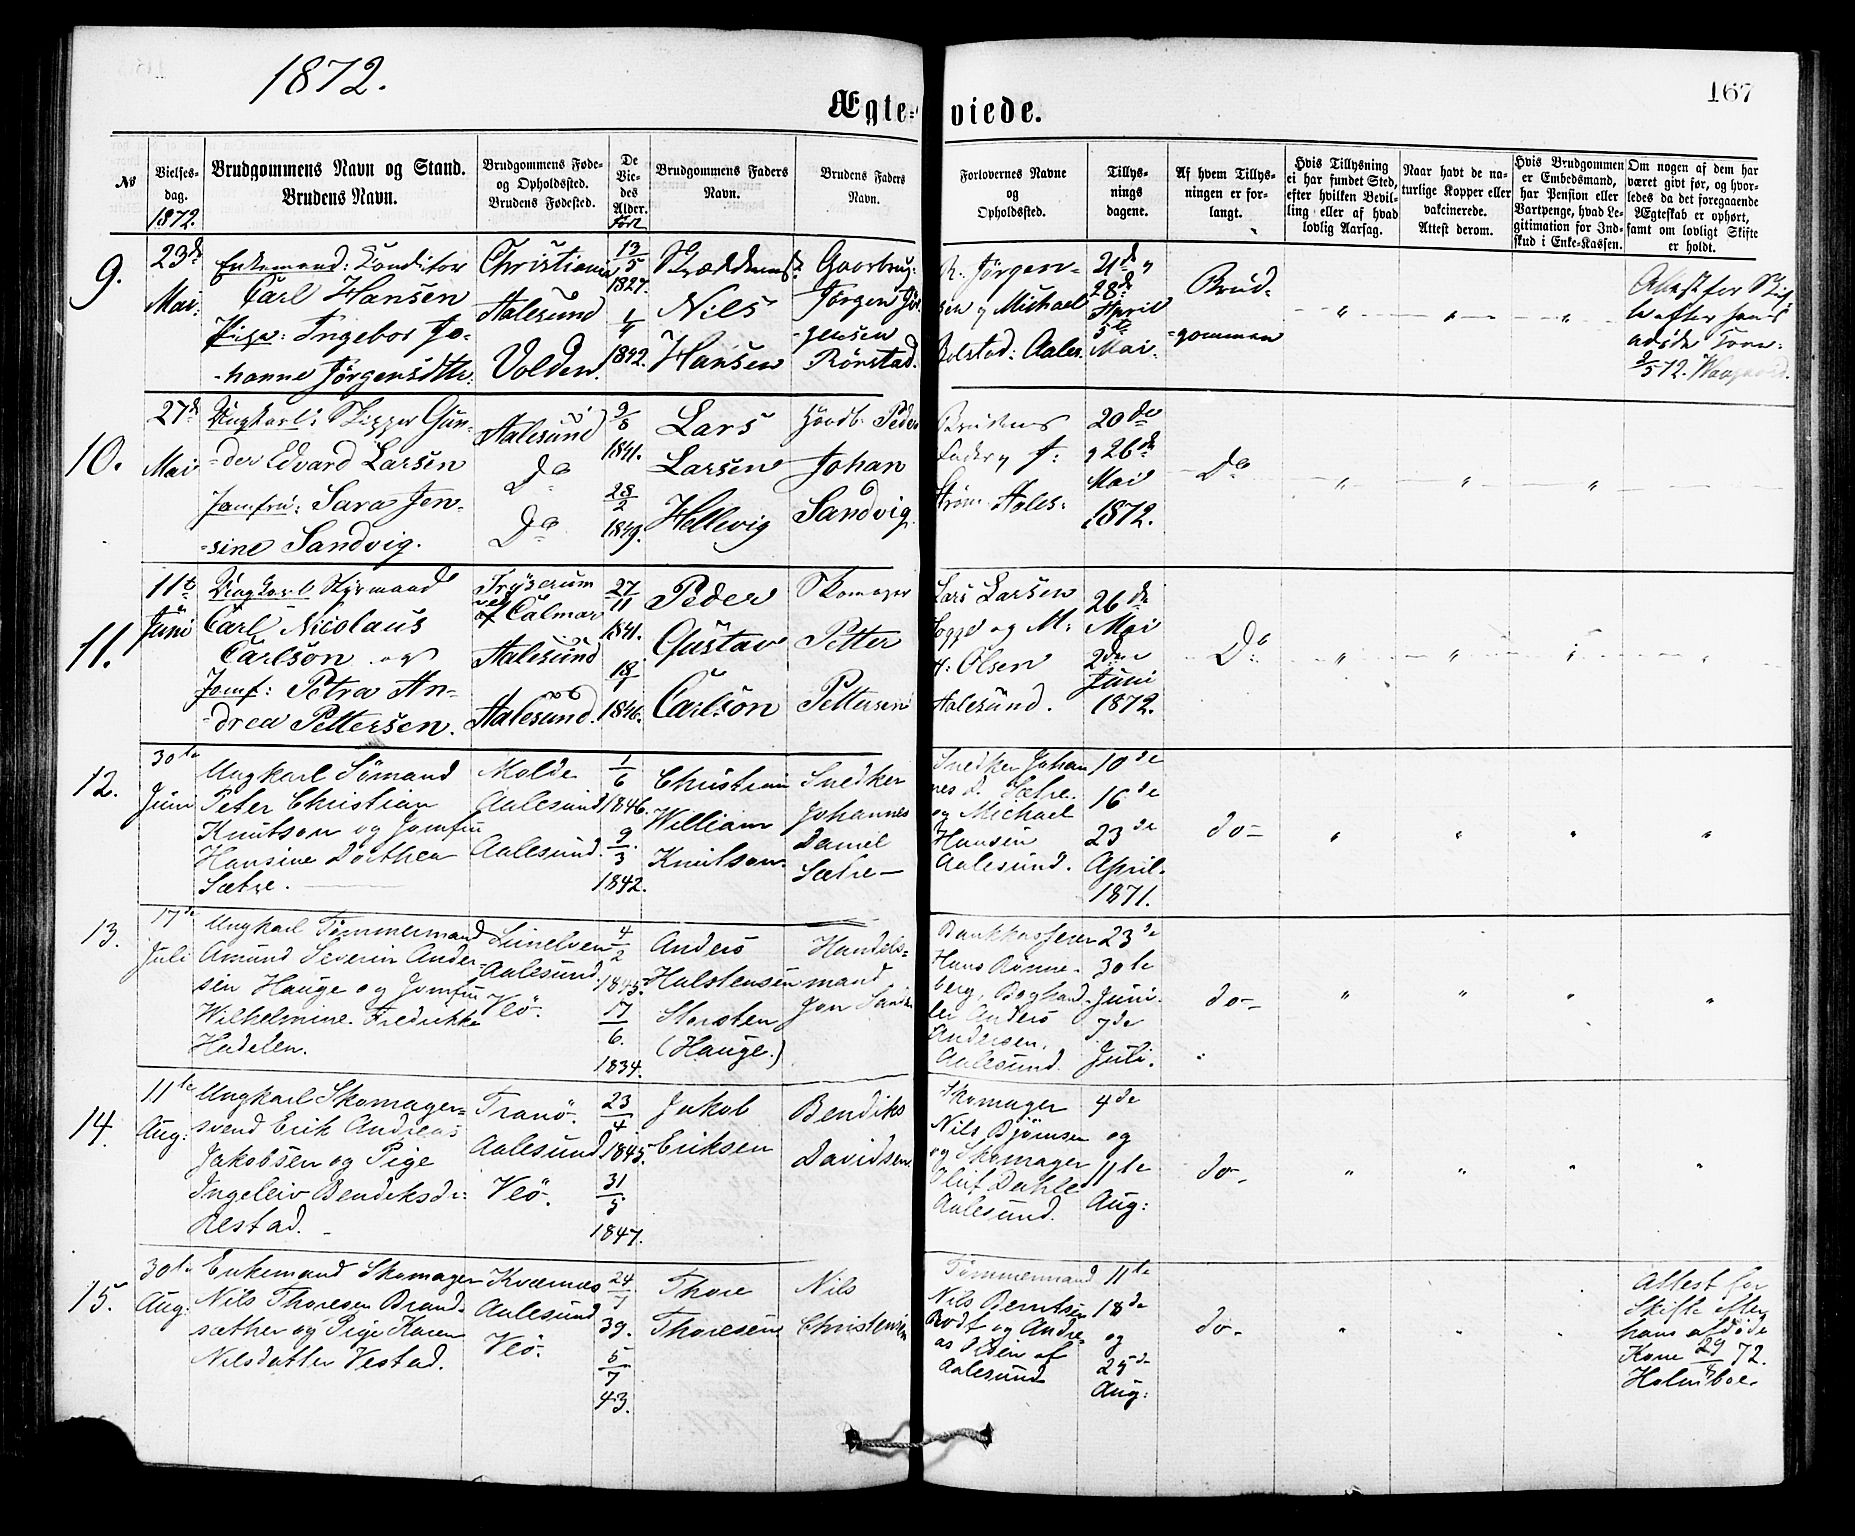 1872.
167
Ægte-viede.
No
Vielses-
dag.
1872.
Brudgommens Navn og Stand.
Brudens Navn.
Brudgommens Føde-
og Opholdssted.
Brudens Fødested.
De
Vie-
des
Alder.
Født
Brudgommens Faders
Navn.
Brudens Faders
Navn.
Forlovernes Navne
og
Opholdssted.
Tillys-
nings
dagene.
Af hvem Tillys-
ningen er for-
langt.
Hvis Tillysning
ei har fundet Sted,
efter hvilken Bevil-
ling eller af hvad
lovlig Aarsag.
Naar havt de na-
turlige Kopper eller
vakcinerede.
Attest derom.
Hvis Brudgommen
er Embedsmand,
har Pension eller
Vartpenge, hvad Le-
gitimation for Ind-
skud i Enke-Kassen.
Om nogen af dem har
været givt før, og hvor-
ledes da det foregaaende
Ægteskab er ophørt,
samt om lovligt Skifte
er holdt.
9.
23de
Mai.
Enkemand: Konditor
Carl Hansen
Pige: Ingebor Jo-
-hanne Jörgensdtr.
Christiania
Aalesund
Volden.
13/5
1827.
1/4
1842.
Nils
Hansen
Gaarbrug:
Jörgen Jör-
gensen
Rörstad.
Jörgen-
sen og Michael
Aales.
21de
28de
April
5te
Mai.
Brud-
-gommen
Attest for Skif-
te efter hans
afdøde Kone
10.
27de
Mai
Ungkarl: Skipper Gun-
-der Edvard Larsen
Jomfru: Sara Jen-
-sine Sandvig.
Aalesund
Do
Do
9/8
1841.
28/2
1849.
Lars
Larsen
Hellevig
Peder
Johan
Sandvig.
Brudens
Fader og J:
Strøm Aales:
20de
og 26de
Mai
1872.
Do
11.
11te
Juni
Ungkarl Styrmand
Carl Nicolaus
Carlson og
Jomf: Petra An-
-drea Pettersen.
Tryserum
ved Calmar
Aalesund
Aalesund.
27/11
1841.
18/1
1846.
Peder
Gustav
Carlson
Skomager
Petter
Pettersen
Lars Larsen
og M:
H: Olsen
Aalesund.
26de
Mai
2den
Juni
1872.
Do
12.
30te
Juni
Ungkarl Sömand
Peter Christian
Knutson og Jomfru
Hansine Dorthea
Sætre.
Molde
Aalesund
Aalesund.
1/6
1846.
9/3
1842.
Christian
William
Knutson.
Snedker
Johannes
Daniel
Sætre
Snedker Johan
nes d. Sætre
og Michael
Hansen
Aalesund.
10de
16de
23de
April
1871.
do
13.
17de
Juli
Ungkarl Tømmermand
Amund Severin Ander-
sen Hauge og Jomfru
Wilhelmine Fredrikke
Hadelen.
Aalesund.
Veö.
4/2
1845.
17/6
1834.
Anders
Halstensen
Storsten
(Hauge.)
Handels-
mand
Jon
Bankkasserer
Hans Rønne-
berg, Boghand-
ler Anders
Andersen.
Aalesund.
23de
30te
Juni
7de
Juli.
do
14.
11te
Aug:
Ungkarl Skomager-
svend Erik Andreas
Jakobsen og Pige
Ingeleiv Bendiksdr:
Restad.
Tranö.
Aalesund
Veö.
23/4
1845.
31/5
1847.
Jakob
Eriksen
Bendiks
Davidsen
Skomager
Nils Bjørnsen
og Skomager
Oluf Dahle
Aalesund.
4de
og
11te
Aug:
do
15.
30te
Aug:
Enkemand Skomager
Nils Thoresen Brand-
sæther og Pige Karen
Nilsdatter Vestad.
Kværnæs
Aalesund
Veö.
24/7
39.
5/7
43.
Thore
Thoresen
Nils
Christensen
Tømmermand
Nils Berntsen
Rodt og Andre-
as af
Aalesund
11te
18de
og
25de
Aug:
do
Attest for
Skifte efter
hans afdøde
Kone 29/8 72.
Holmboe